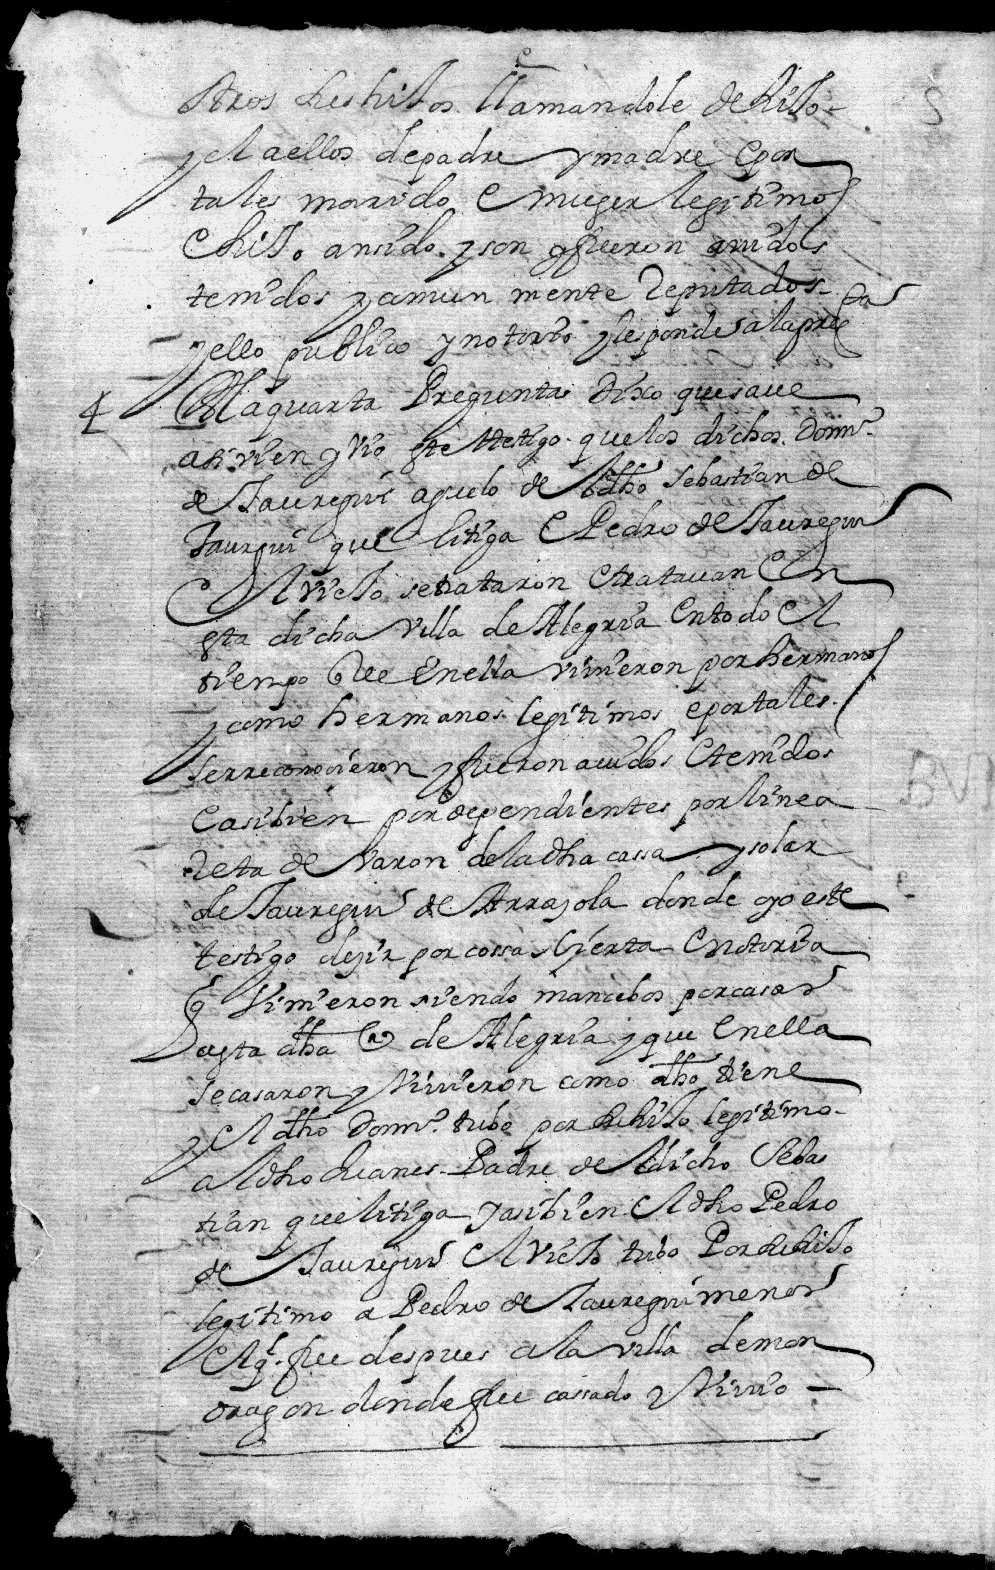 otros sus hijos llamandole de hijo
y el a ellos de padre y madre e por
tales marido e muger legitimos
e hijo an sido y son y fueron auidos
tenidos y comun mente Reputados
y ello publico y notorio y Responde a la preg ta
4 A la quarta Pregunta dixo que saue
asi vien y vio este testigo que los dichos Dom.
de Jauregui aguelo de el dho Sebastian de
Jauregui que litiga e Pedro de Jauregui
el viejo se trataron e tratauan en
esta dicha villa de Alegria en todo el
tienpo que en ella viuieron por hermanos
y como hermanos legitimos e por tales
se rreconocieron y fueron auidos e tenidos
e asi bien por dependientes por linea
Reta de varon de la dha cassa y solar
de Jauregui de Arrasola donde oyo este
testigo dezir por cossa cierta e notoria
q vinieron siendo mancebos por casar
a esta dha va de Alegria y que en ella
se casaron y viuieron como dho tiene
y el dho Dom. tubo por su hijo legitimo
al dho Juanes Padre de el dicho Sebas
tian que litiga y asi bien el dho Pedro
de Jauregui el viejo tubo Por su hijo
legitimo a Pedro de Jauregui menor
el q. fue despues a la villa de mon
dragon donde fue cassado y viuio